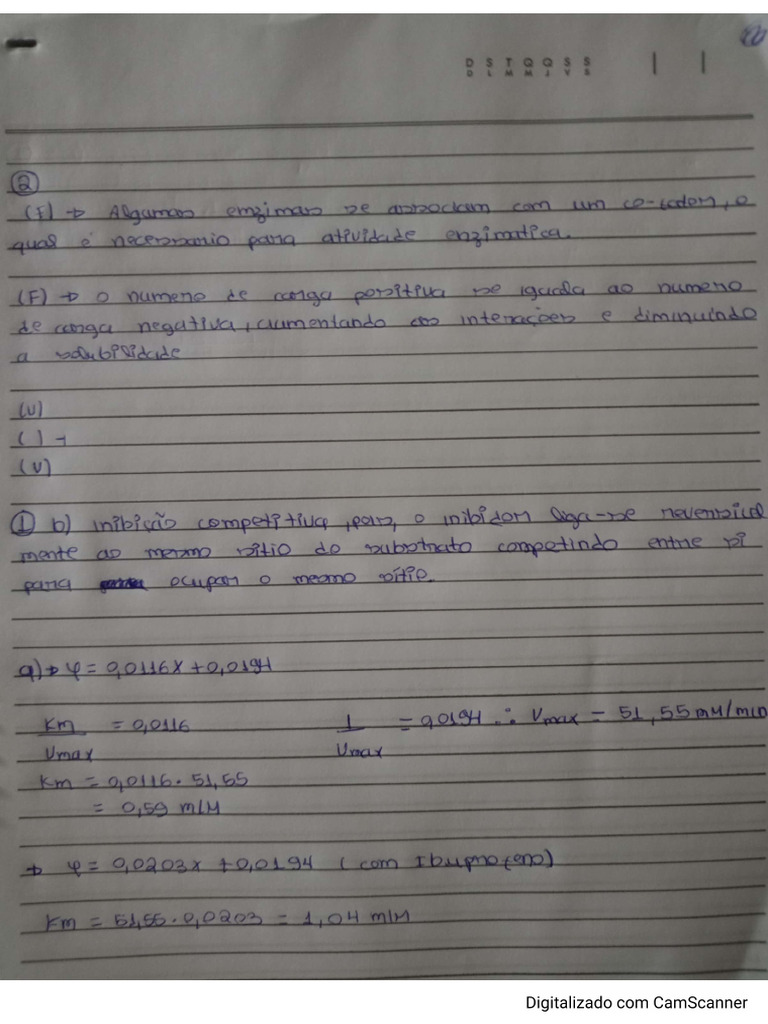 D S T Q Q S S
D L M M J V S
②
(F) → Algumas enzimas se associam com um co-fator, o
qual é necessario para atividade enzimatica.
(F) → o numero de carga positiva se iguala ao numero
de carga negativa, aumentando as interações e diminuindo
a solubilidade
(V)
( ) →
(V)
① b) inibição competitiva, pois, o inibidor liga-se reversivel
mente ao mesmo sitio do substrato competindo entre si
para ocupar o mesmo sítio.
a) → y = 0,0116x + 0,0194
Km = 0,0116 1 = 0,0194 ∴ Vmax = 51,55 mM/min
Vmax Vmax
Km = 0,0116 . 51,55
= 0,59 mM
→ y = 0,0203x + 0,0194 (com Ibuprofeno)
Km = 51,55 . 0,0203 = 1,04 mM
Digitalizado com CamScanner